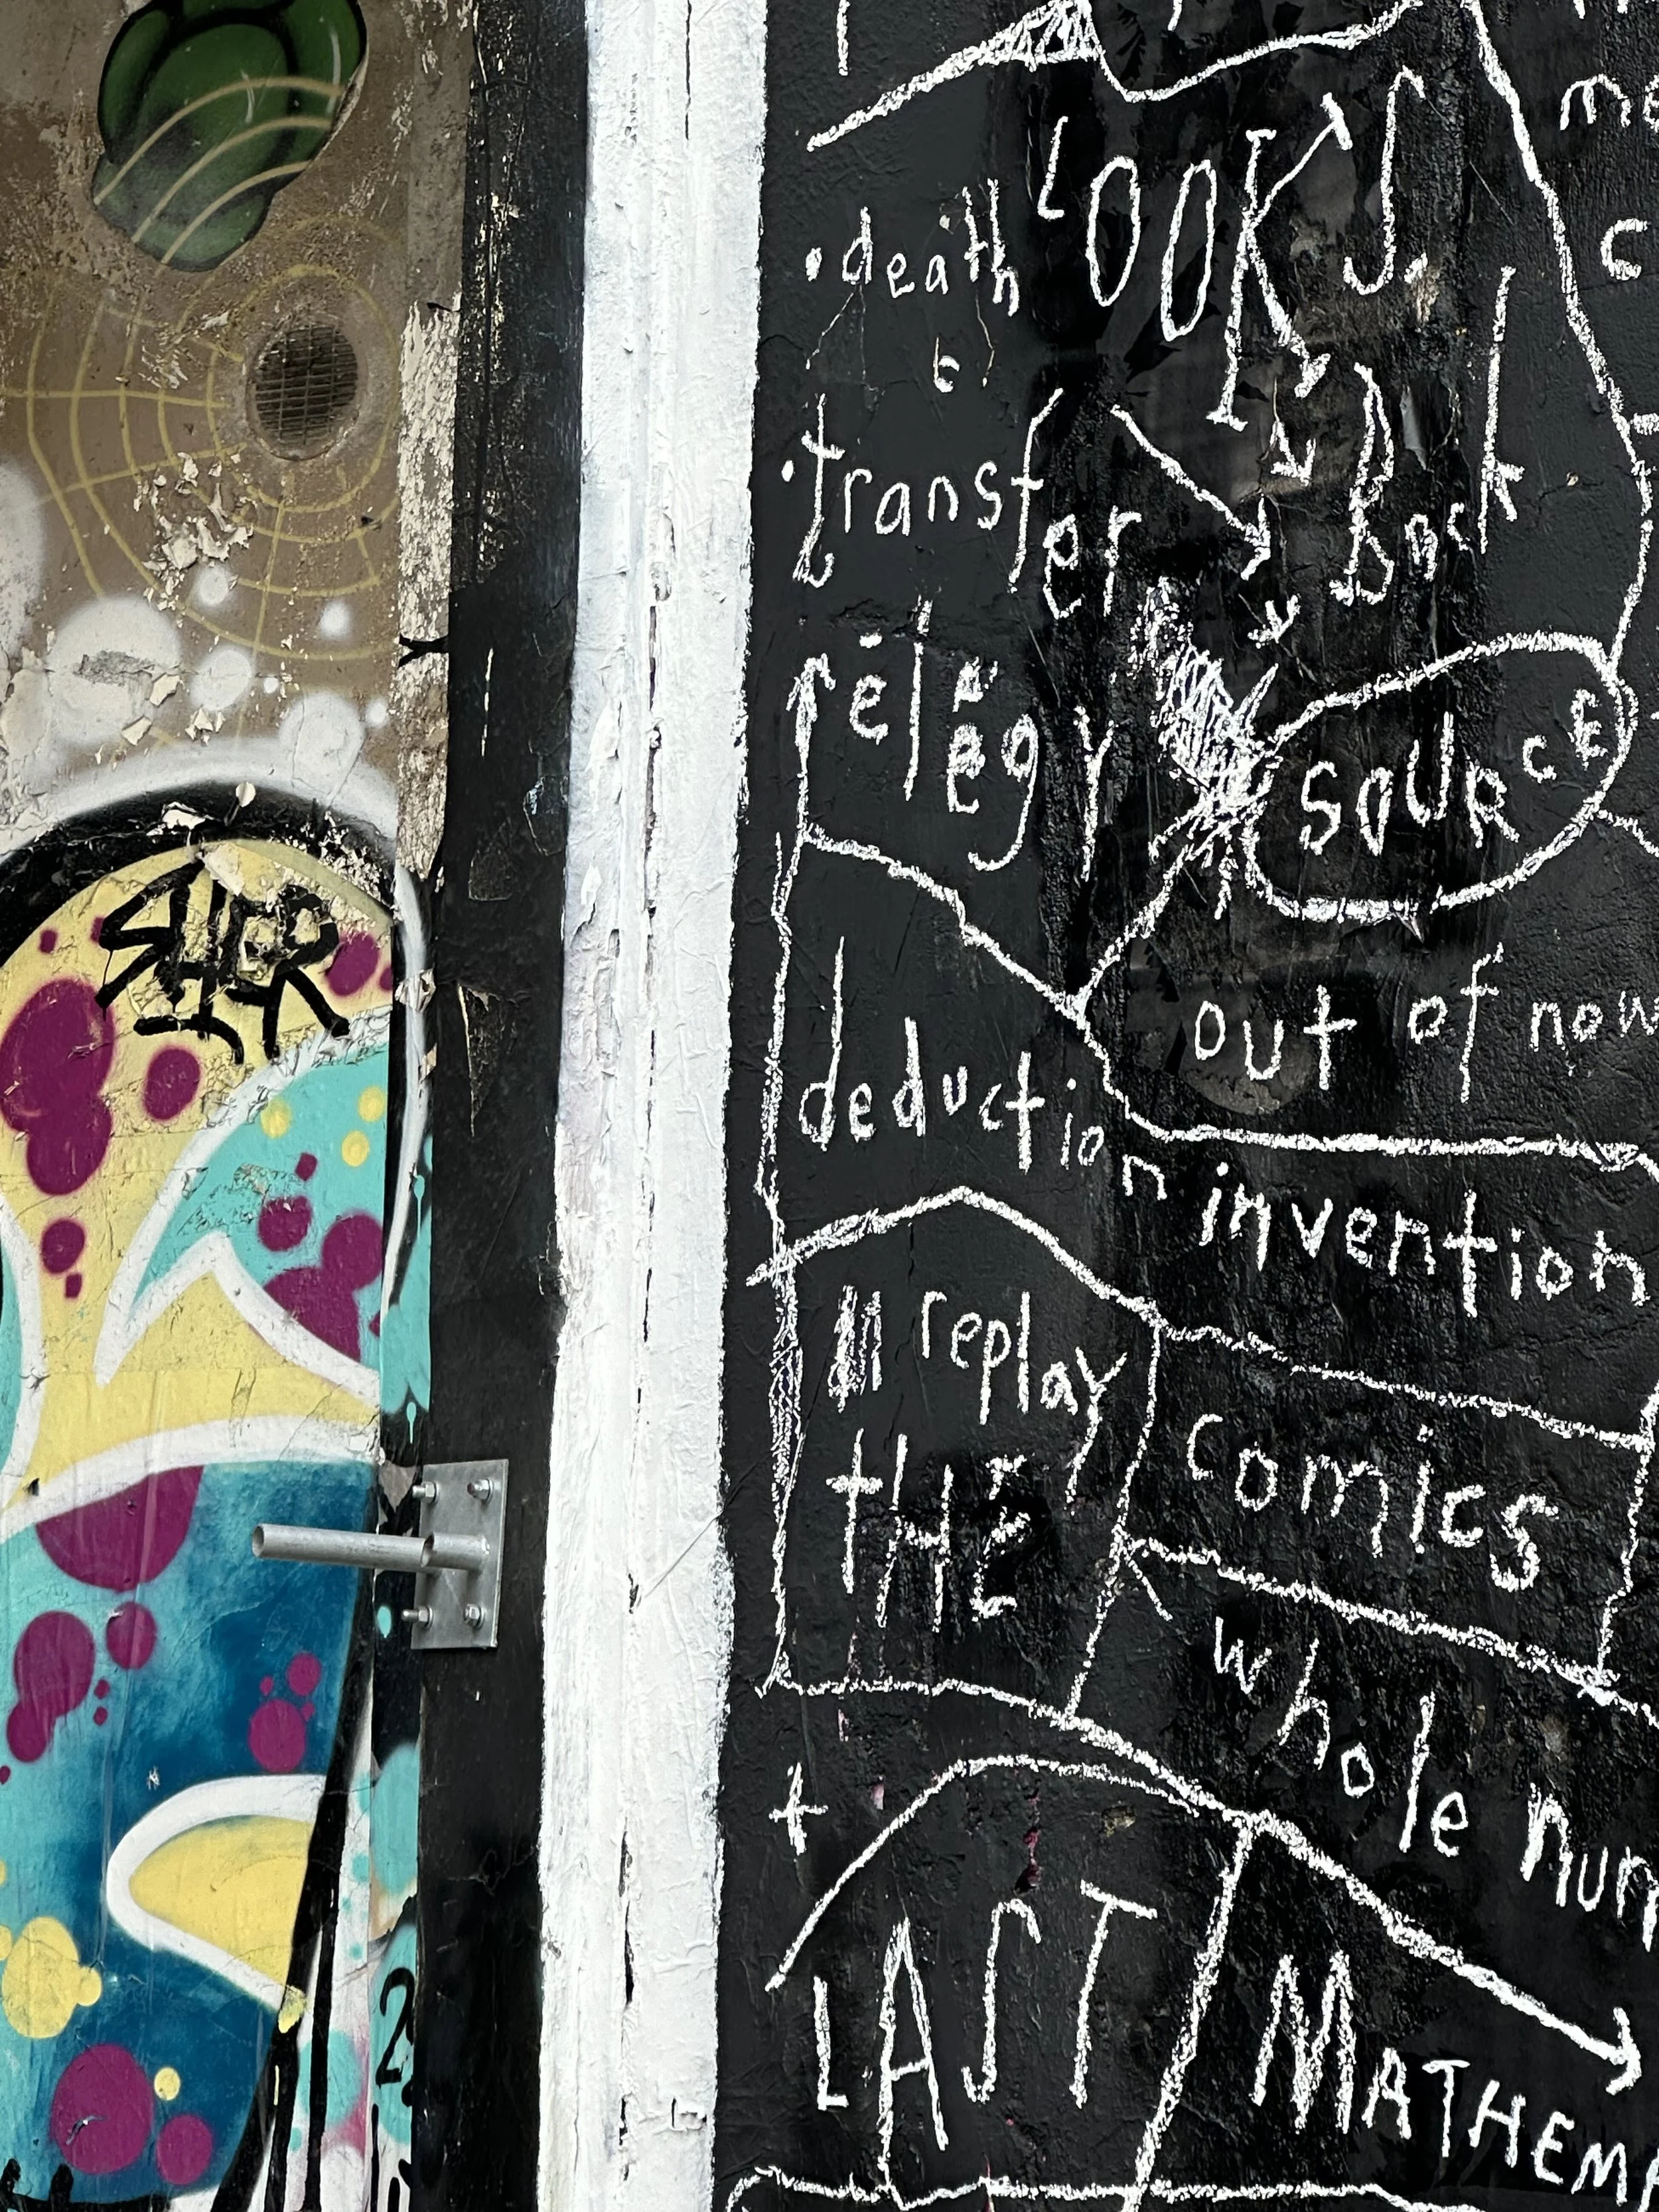 LOOKS.
death
transfer
Back
elegy
SOURCE
out of now
deduction
invention
replay
tHE
comics
whole num
+
LAST
MATHEMA
SHER